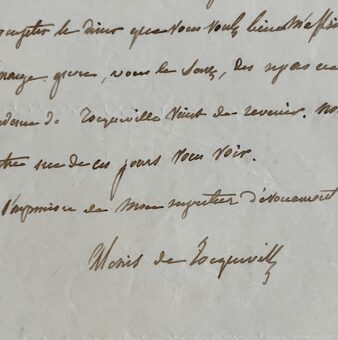 accepter le diner que vous voulez bien m'offrir
mange guère, vous le savez, des repas en
dame de Tocqueville vient de revenir. No
un de ces jours vous voir.
l'expression de mon respectueux dévouement
Alexis de Tocqueville